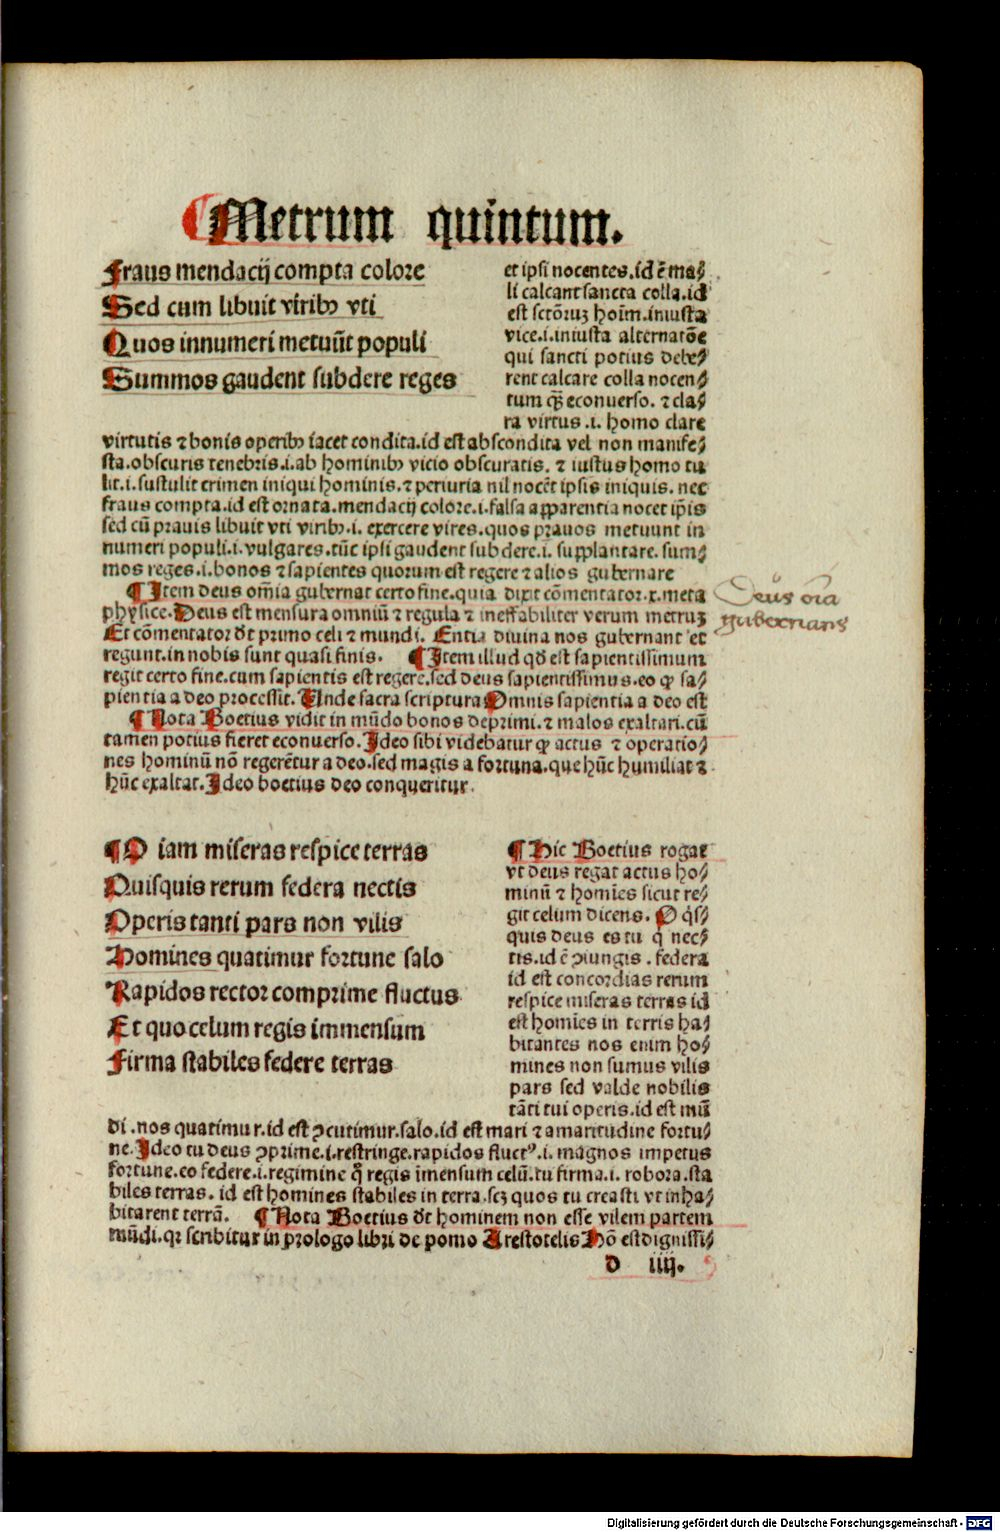 Metrum quintum.
Fraus mendacij compta colore
Sed cum libuit viribꝰ vti
Quos innumeri metuūt populi
Summos gaudent subdere reges
et ipsi nocentes.id ē ma⸗
li calcant sancta colla.id
est sctōruꝫ hoīm.iniusta
vice.i.iniusta alternatōe
qui sancti potius debe⸗
rent calcare colla nocen⸗
tum qꝫ econuerso. ⁊ cla⸗
ra virtus .i. homo clare
virtutis ⁊ bonis operibꝰ iacet condita.id est abscondita vel non manife⸗
sta.obscuris tenebris.i.ab hominibꝰ vicio obscuratis. ⁊ iustus homo tu
lit.i.sustulit crimen iniqui hominis.⁊ periuria nil nocēt ipsis iniquis. nec
fraus compta.id est ornata.mendacij colore.i.falsa apparentia nocet ip̄is
sed cū prauis libuit vti viribꝰ.i. exercere vires.quos prauos metuunt in
numeri populi.i.vulgares.tūc ipsi gaudent subdere.i. supplantare.sum⸗
mos reges.i.bonos ⁊ sapientes quorum est regere ⁊ alios gubernare
¶ Item deus om̄ia gubernat certo fine.quia dixit cōmentator.x.meta
physice.Deus est mensura omniū ⁊ regula ⁊ ineffabiliter verum metruꝫ
Et cōmentator dt̄ primo celi ⁊ mundi. Entia diuina nos gubernant et
regunt.in nobis sunt quasi finis. ¶ Item illud qd̄ est sapientissimum
regit certo fine.cum sapientis est regere.sed deus sapientissimus.eo ꝙ sa⸗
pientia a deo processit. Unde sacra scriptura Omnis sapientia a deo est
¶ Nota Boetius vidit in mūdo bonos deprimi.⁊ malos exaltari.cū
tamen potius fieret econuerso.Ideo sibi videbatur ꝙ actus ⁊ operatio⸗
nes hominū nō regerētur a deo.sed magis a fortuna.que hūc humiliat ⁊
hūc exaltat.Ideo boetius deo conqueritur.
Deus oīa
gubernans
¶ O iam miseras respice terras
Quisquis rerum federa nectis
Operis tanti pars non vilis
Homines quatimur fortune salo
Rapidos rector comprime fluctus
Et quo celum regis immensum
Firma stabiles federe terras
¶ Hic Boetius rogat
vt deus regat actus ho⸗
minū ⁊ homīes sicut re⸗
git celum dicens. O q̇s⸗
quis deus es tu q̇ nec⸗
tis.id ē ꝯiungis . federa
id est concordias rerum
respice miseras terras id
est homīes in terris ha⸗
bitantes nos enim ho⸗
mines non sumus vilis
pars sed valde nobilis
tāti tui operis.id est mū
di .nos quatimur.id est ꝯcutimur.salo.id est mari ⁊ amaritudine fortu⸗
ne.Ideo tu deus ꝯprime.i.restringe.rapidos fluctꝰ.i. magnos impetus
fortune.eo federe.i.regimine q̄ regis īmensum celū.tu firma.i. robora.sta
biles terras. id est homines stabiles in terra.scꝫ quos tu creasti vt inha⸗
bitarent terrā. ¶ Nota Boetius dt̄ hominem non esse vilem partem
mūdi.qꝛ scribitur in prologo libri de pomo Arestotelis Hō est dignissi⸗
d iiij.
Digitalisierung gefördert durch die Deutsche Forschungsgemeinschaft - DFG